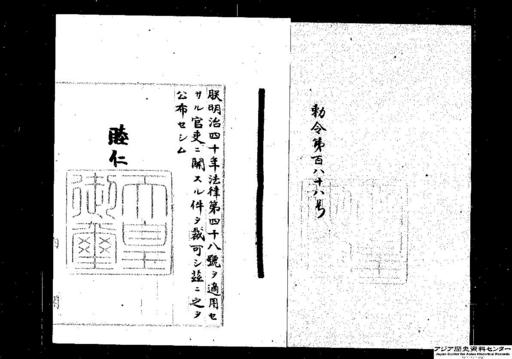 勅令第百八十八号
朕明治四十年法律第四十八號ヲ適用セ
サル官吏ニ關スル件ヲ裁可シ茲ニ之ヲ
公布セシム
睦仁
天皇
御璽
アジア歴史資料センター
Japan Center for Asian Historical Records